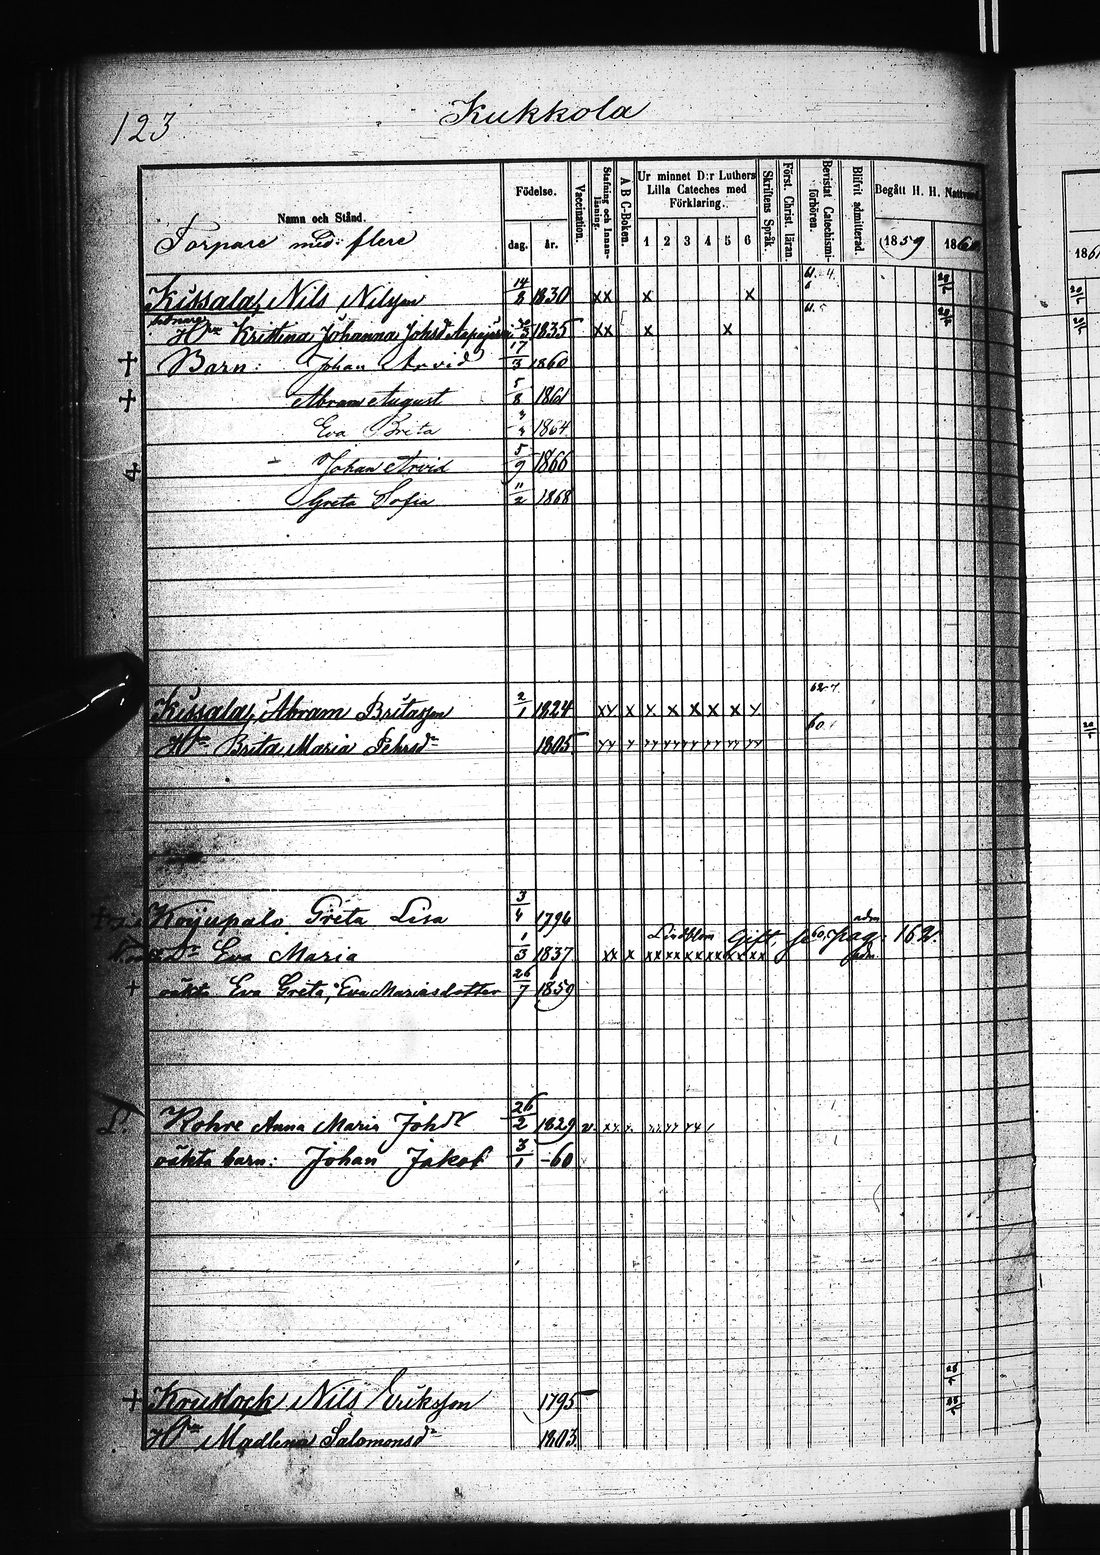 123
Kukkola
Namn och Stånd.
Torpare med flere
Födelse.
dag.
år.
Vaccination.
Stafning och Innanläsning.
A B C-Boken.
Ur minnet D:r Luthers Lilla Cateches med Förklaring.
1 2 3 4 5 6
Skriftens Språk.
Först. Christ. läran.
Bevistat Catechismiförhören.
Blifvit admitterad.
Begått H. H. Nattvard
1859
1860
Kissala, Nils Nilsson 14/8 1830 xx x x
Hu Kristina Johanna Johsd 1835 xx x x
+ Barn: Johan Arvid 17/3 1860
+ Abram August 5/8 1861
Eva Brita 1864
Johan Arvid 5/9 1866
Greta Sofia 11/2 1868
Kissala, Abram Britasson 2/1 1824 xx x x x x x x x
Hu Brita Maria Pehrsdr 1805
Koijupalo Greta Lisa 3/4 1796
Eva Maria 1/3 1837 xx x xx xx xx xx xx xx
Gift, pag: 162.
+ oäkta Eva Greta, Eva Mariasdotter 26/7 1859
Rohre Anna Maria Johdr 26/2 1829
oäkta barn: Johan Jakob 3/1 -60
+ Krustock Nils Eriksson 1795
Hu Madlena Salomonsdr 1803.